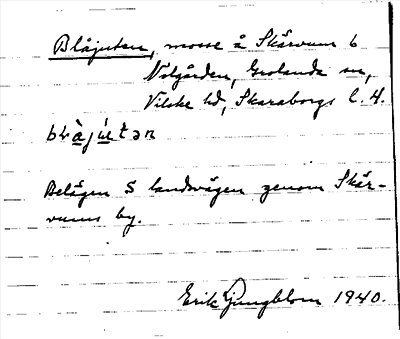 Blåjuten, mosse å Skärvum 6
Nolgården, Grolanda sn,
Vilske hd, Skaraborgs l. 4.
bʟàju̇tən
Belägen S landsvägen genom Skär-
vums by.
Erik Ljungblom 1940.